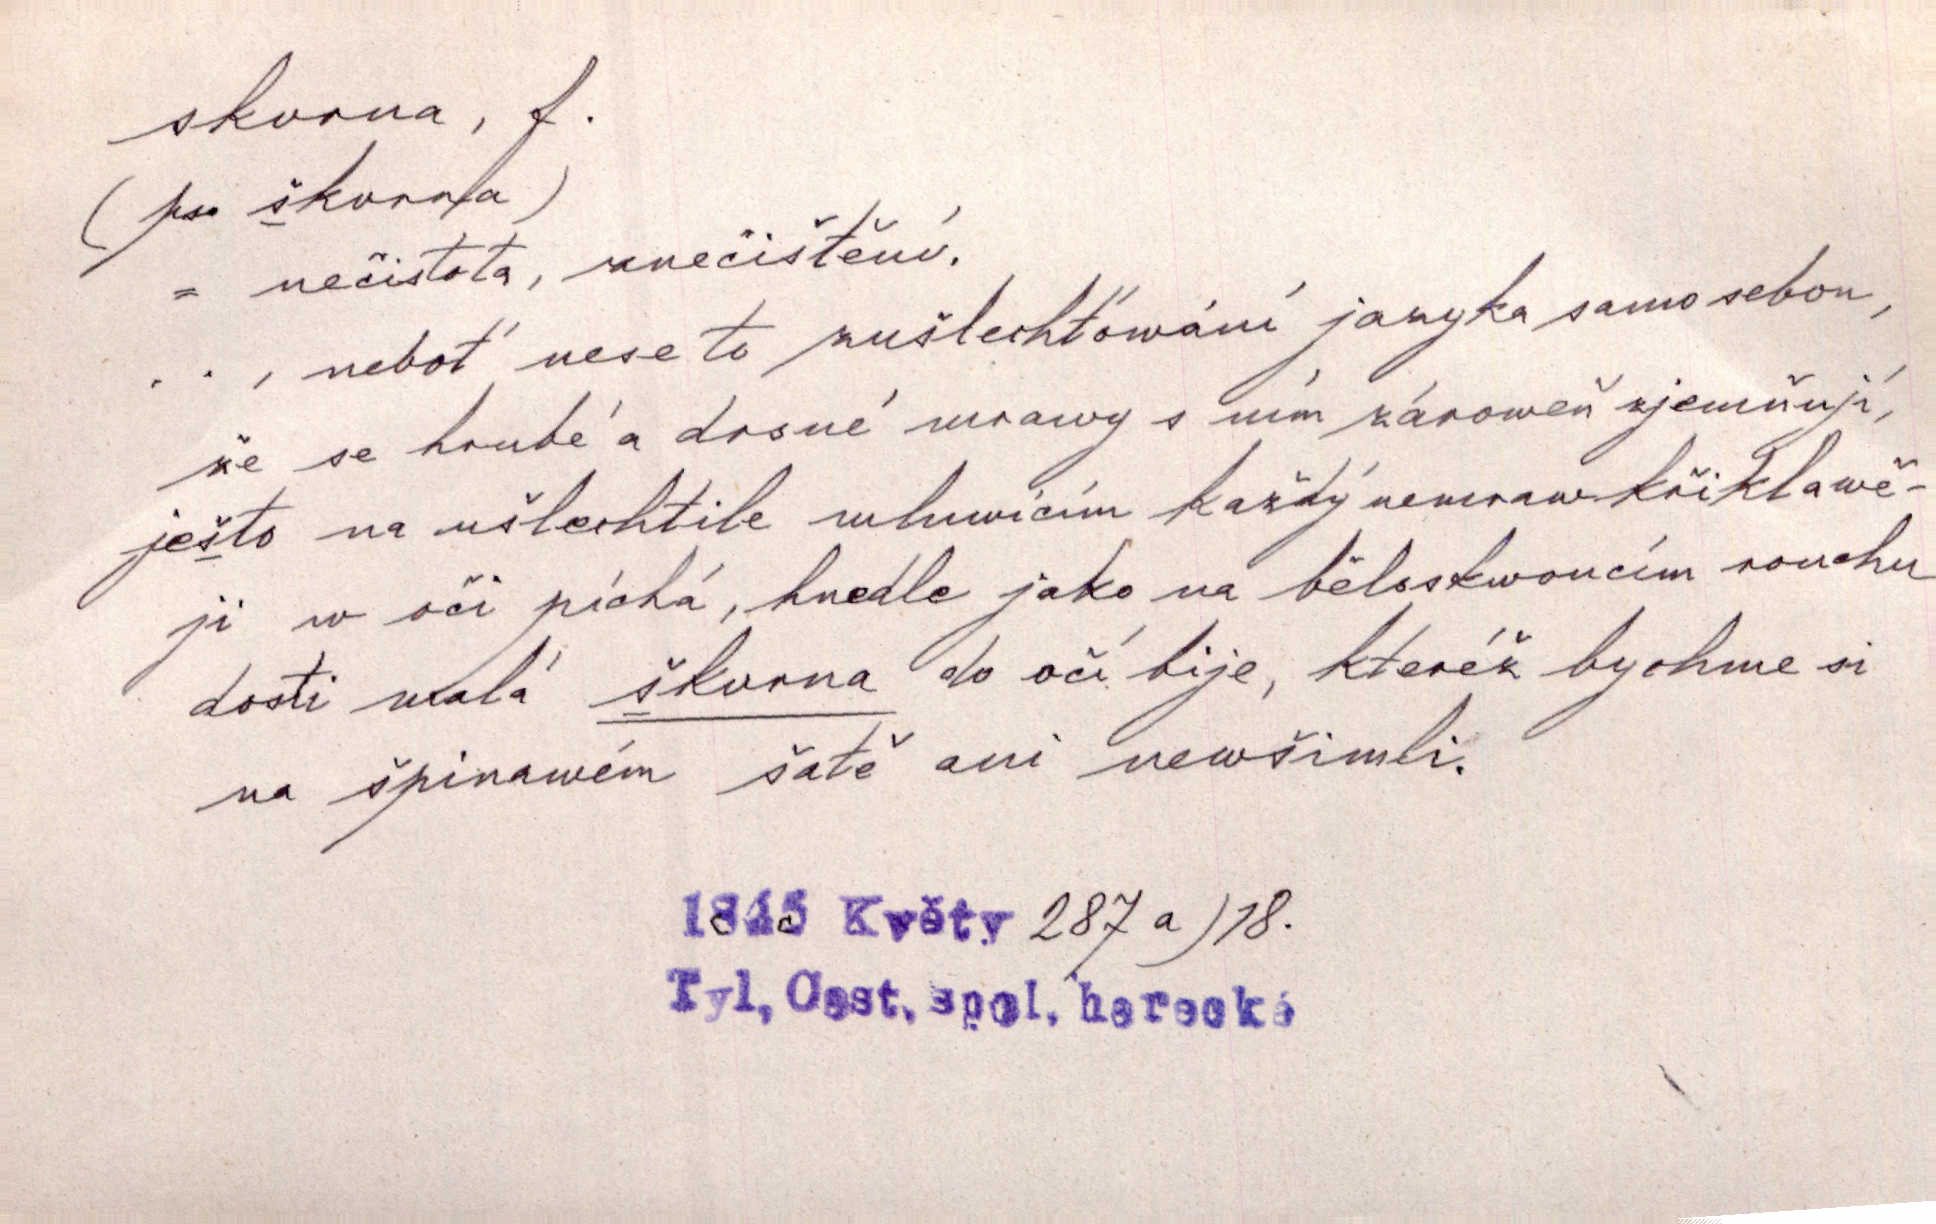 skvrna, f.
(ps. škvrna)
= nečistota, znečištění.
. . , neboť nese to zušlechťowání jazyka samo sebou,
že se hrubé a drsné mrawy s ním zároweň zjemňují,
ješto na ušlechtile mluwícím každý nemraw křiklawě-
ji w oči píchá, hnedle jako na běloskwoucím rouchu
dosti malá škvrna do očí bije, kteréž bychme si
na špinawém šatě ani newšimli.
1845 Květy 287 a) 18.
Tyl, Cest. spol. herecké